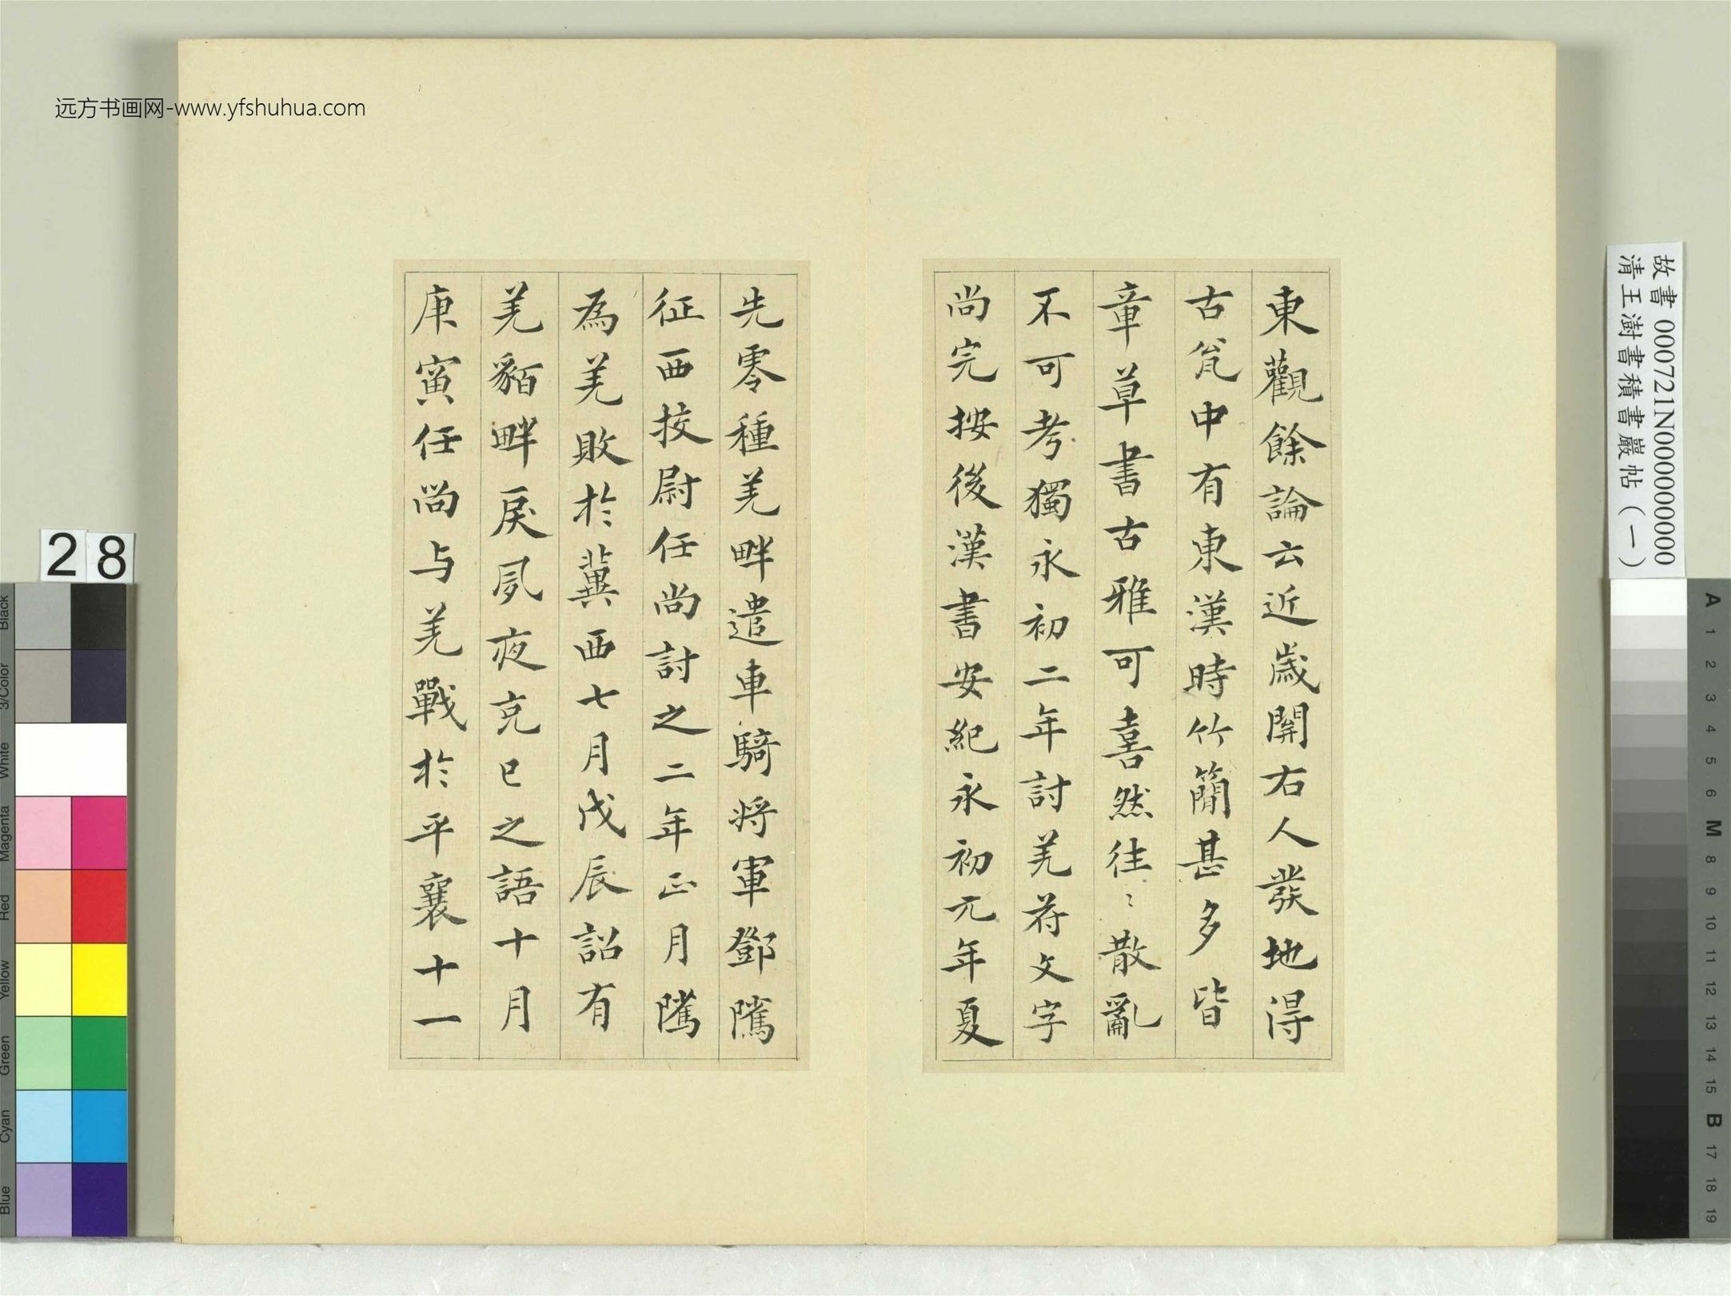 远方书画网-www.yfshuhua.com
東觀餘論云近歲關右人發地得
古瓮中有東漢時竹簡甚多皆
章草書古雅可喜然往〻散亂
不可考獨永初二年討羌符文字
尚完按後漢書安紀永初元年夏
先零種羌畔遣車騎將軍鄧騭
征西校尉任尚討之二年正月騭
為羌敗於冀西七月戊辰詔有
羌貊畔戾夙夜克己之語十月
庚寅任尚与羌戰於平襄十一
故書 000721N000000000
清王澍書積書巖帖（一）
28
Black
3/Color
White
Magenta
Red
Yellow
Green
Cyan
Blue
A
1
2
3
4
5
6
M
8
9
10
11
12
13
14
15
B
17
18
19